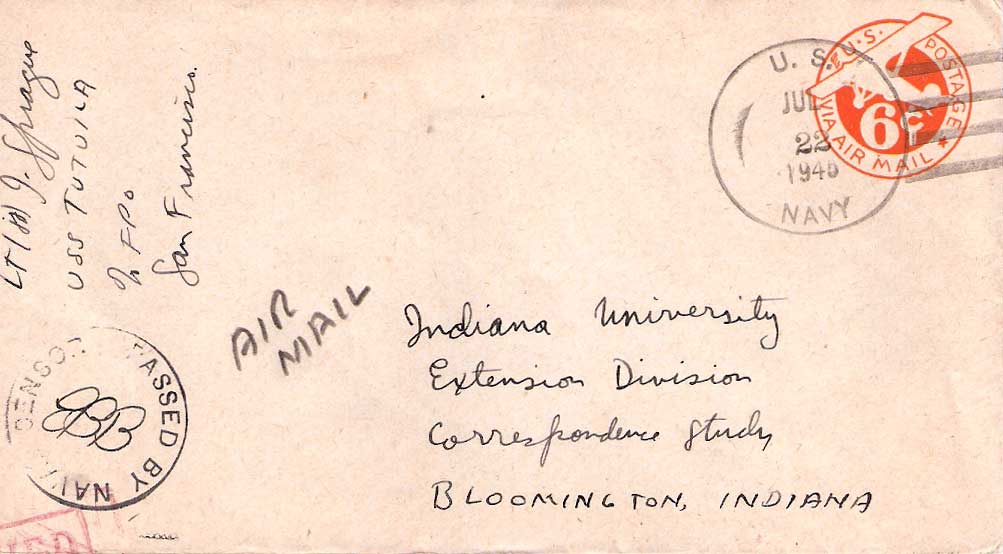 LT(JG) J. Sprague
USS TUTUILA
% FPO
San Francisco.
U.S. POSTAGE
VIA AIR MAIL
6¢
U. S.
JUL
22
1945
NAVY
AIR
MAIL
Indiana University
Extension Division
Correspondence Study
BLOOMINGTON, INDIANA
PASSED BY NAVAL CENSOR